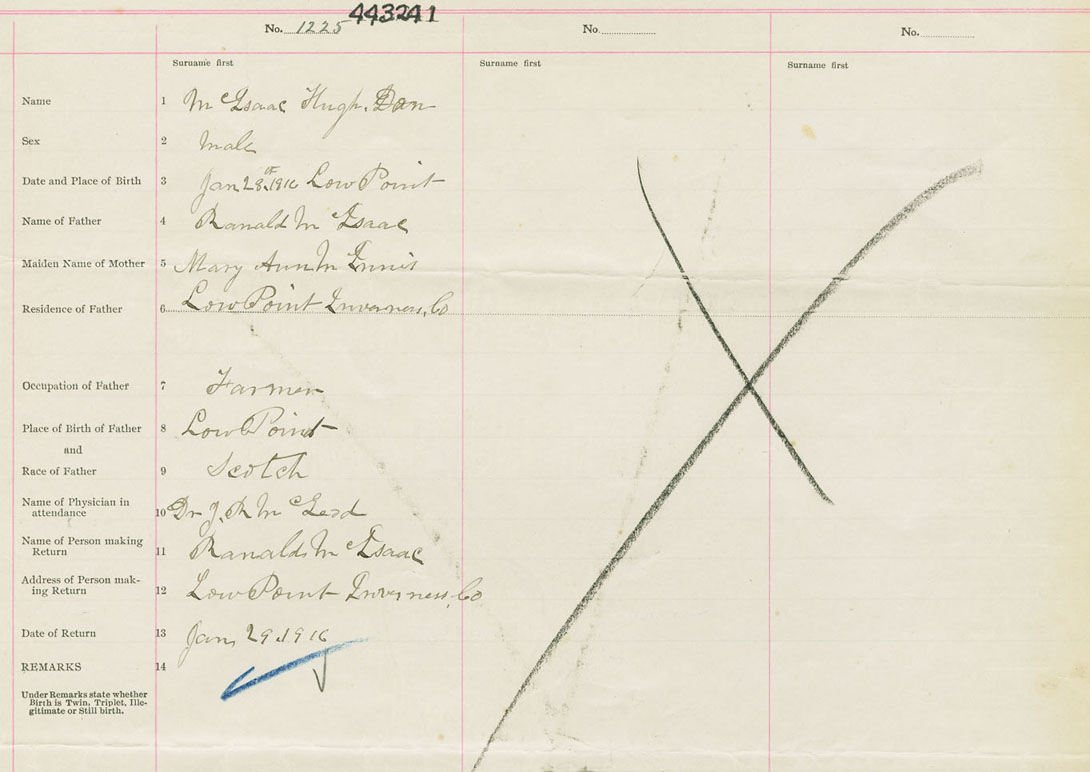 443241
No. 1225 No. No.
Surname first Surname first Surname first
Name 1 McIsaac Hugh. Dan
Sex 2 Male
Date and Place of Birth 3 Jan 28th 1916 Low Point
Name of Father 4 Ranald McIsaac
Maiden Name of Mother 5 Mary Ann McInnis
Residence of Father 6 Low Point Inverness, Co
Occupation of Father 7 Farmer
Place of Birth of Father 8 Low Point
and
Race of Father 9 Scotch
Name of Physician in
attendance 10 Dr J. R Mc
Name of Person making
Return 11 Ranald McIsaac
Address of Person mak-
ing Return 12 Low Point Inverness, Co
Date of Return 13 Jan, 29. 1916
REMARKS 14
Under Remarks state whether
Birth is Twin, Triplet, Ille-
gitimate or Still birth.